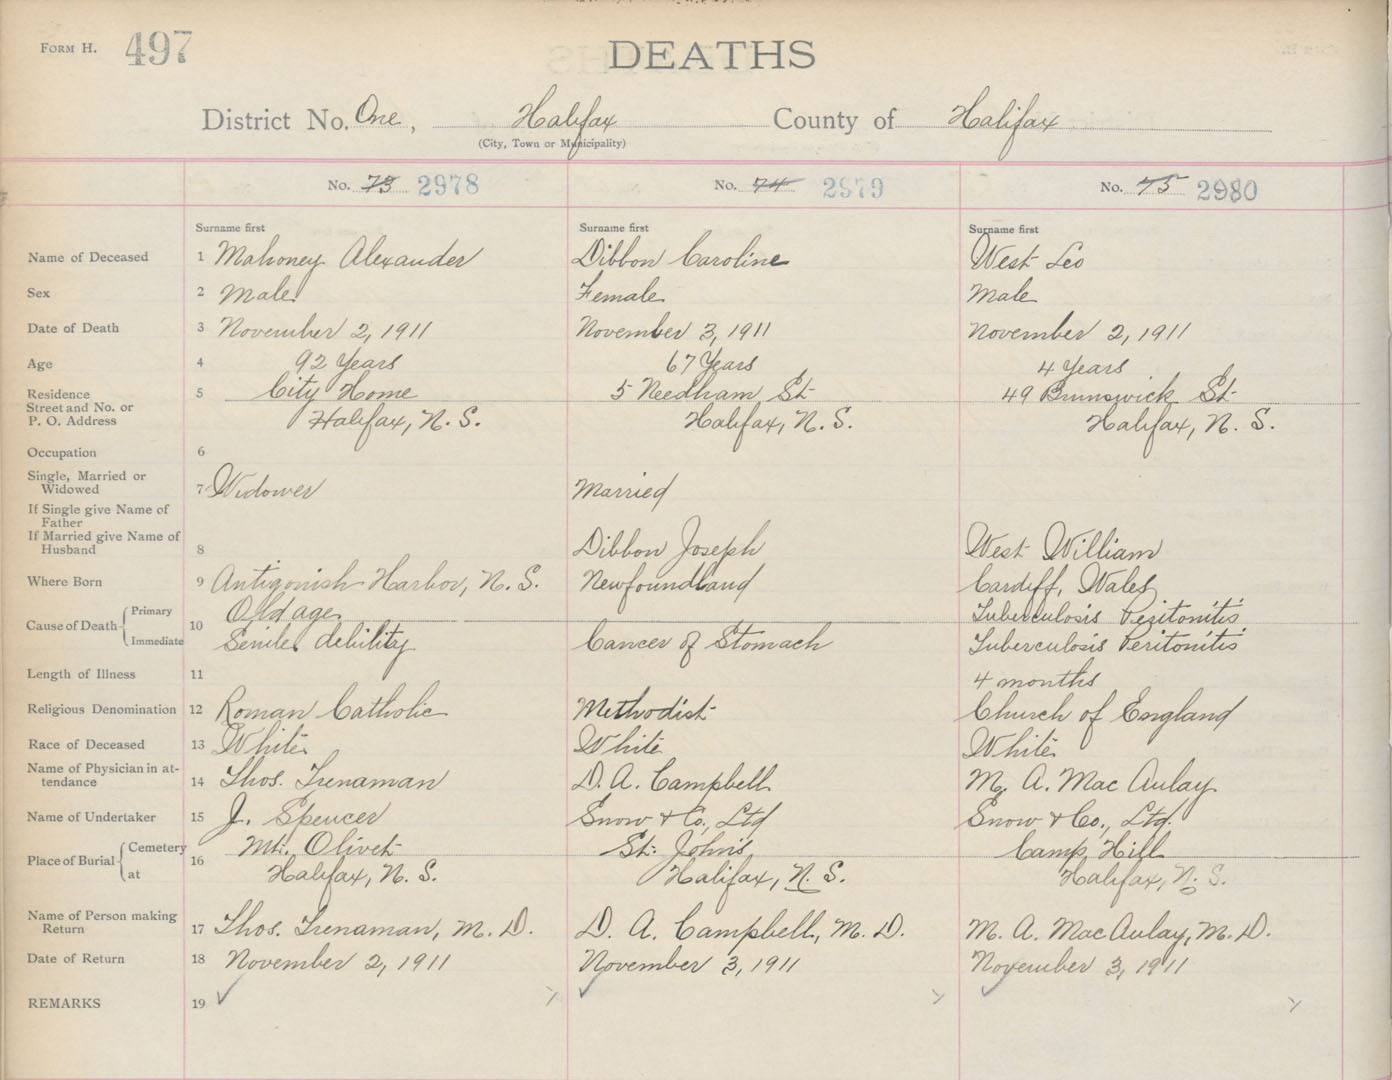 FORM H. 497
DEATHS
District No. One, Halifax County of Halifax
(City, Town or Municipality)
No. 73 2978 No. 74 2979 No. 75 2980
Surname first Surname first Surname first
Name of Deceased 1 Mahoney Alexander Dibbon Caroline West Leo
Sex 2 Male Female Male
Date of Death 3 November 2, 1911 November 3, 1911 November 2, 1911
Age 4 92 Years 67 Years 4 Years
Residence 5 City Home 5 Needham St. 49 Brunswick St.
Street and No. or
P. O. Address Halifax, N. S. Halifax, N. S. Halifax, N. S.
Occupation 6
Single, Married or
Widowed 7 Widower Married
If Single give Name of
Father
If Married give Name of
Husband 8 Dibbon Joseph West William
Where Born 9 Antigonish Harbor, N. S. Newfoundland Cardiff, Wales
Primary Old age Tuberculosis Peritonitis
Cause of Death 10
Immediate Senile debility Cancer of Stomach Tuberculosis Peritonitis
Length of Illness 11 4 months
Religious Denomination 12 Roman Catholic Methodist Church of England
Race of Deceased 13 White White White
Name of Physician in at-
tendance 14 Thos. Trenaman D. A. Campbell M. A. MacAulay
Name of Undertaker 15 J. Spencer Snow & Co., Ltd Snow & Co., Ltd.
Cemetery Mt. Olivet St. John's Camp Hill
Place of Burial 16
at Halifax, N. S. Halifax, N. S. Halifax, N. S.
Name of Person making
Return 17 Thos. Trenaman, M. D. D. A. Campbell, M. D. M. A. MacAulay, M. D.
Date of Return 18 November 2, 1911 November 3, 1911 November 3, 1911
REMARKS 19